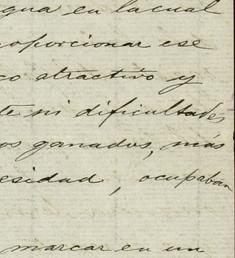 gua en la cual
roporcionar ese
co atractivo y
te ni dificultades
os ganados, más
esidad, ocupaban
marcar en un